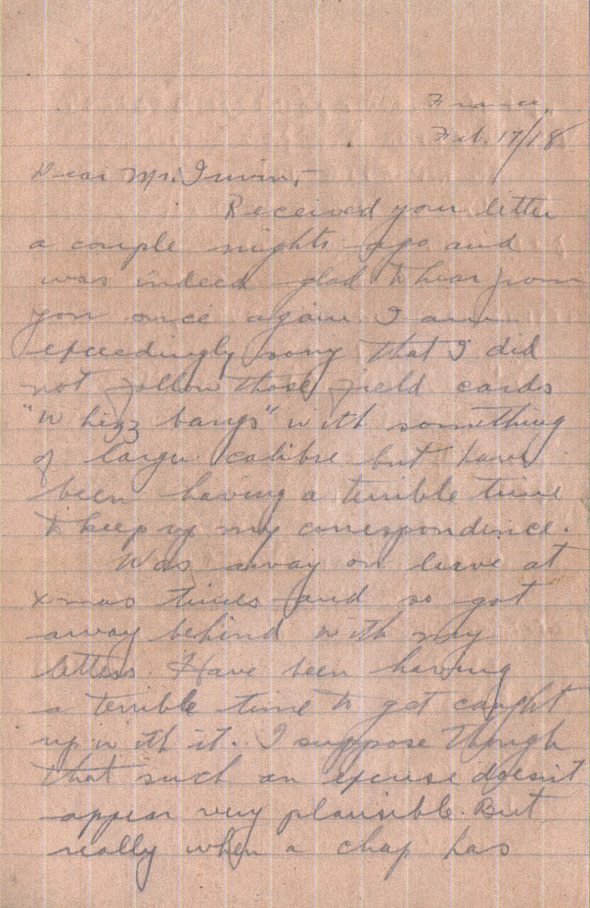 France,
Feb. 17/18
Dear Mr. Irwin,-
Received your letter
a couple nights ago and
was indeed glad to hear from
you once again. I am
exceedingly sorry that I did
not follow those field cards
"Whizz bangs" with something
of larger calibre but have
been having a terrible time
to keep up my correspondence.
Was away on leave at
Xmas times and so got
away behind with my
letters. Have been having
a terrible time to get caught
up with it. I suppose though
that such an excuse doesn't
appear very plausible. But
really when a chap has